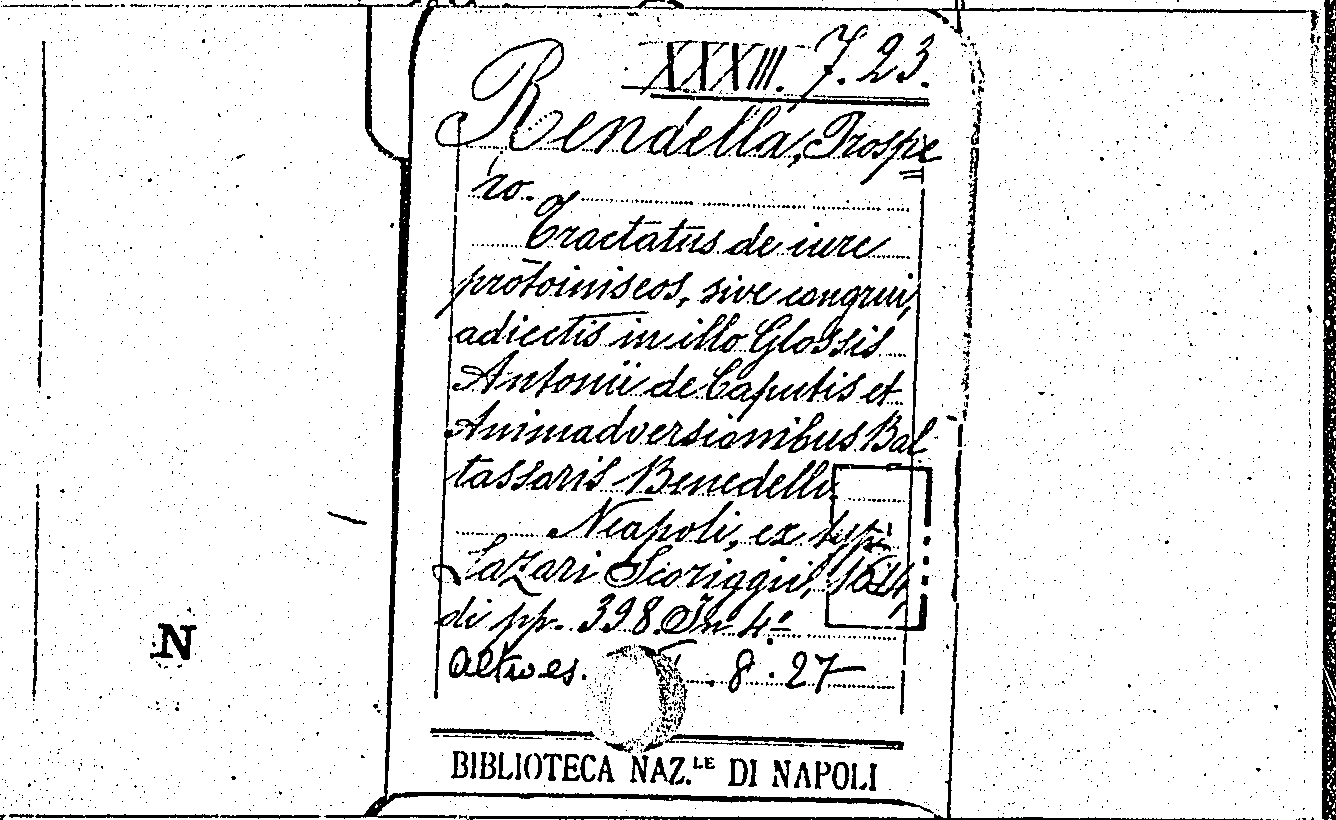 XXXIII. 7. 23.
Rendella, Prospe
ro.
Tractatus de iure
protoiniseos, sive congrui,
adiectis in illo Glossis
Antonii de Caputis et
Animadversionibus Bal
tassaris Benedelli.
Neapoli, ex typ.
Lazari Scoriggii,
di pp. 398. In 4.º
Altro es. 8. 27
BIBLIOTECA NAZ.LE DI NAPOLI
N